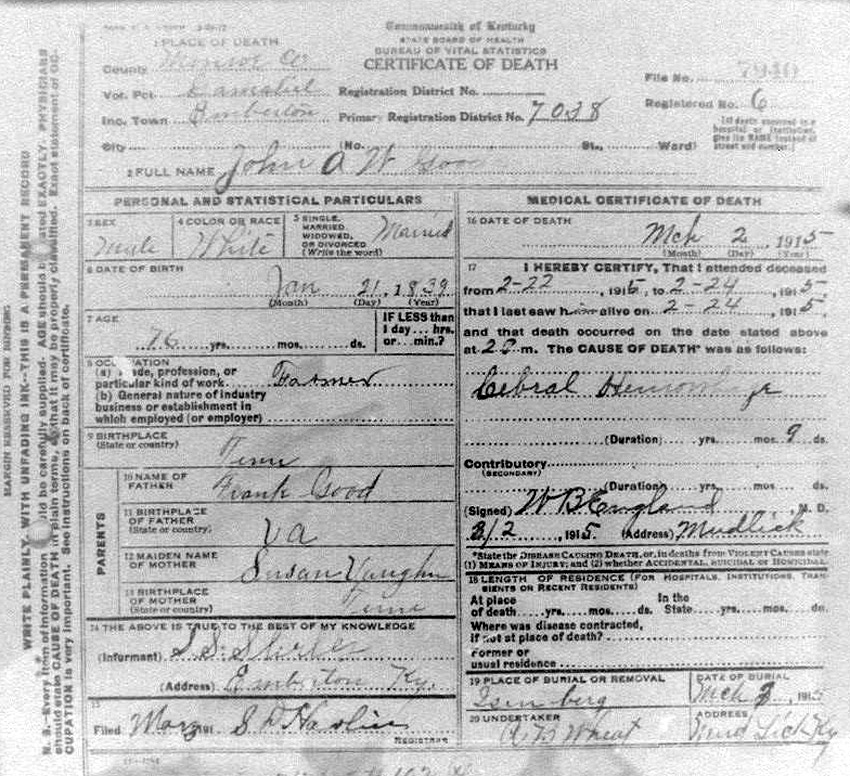 Commonwealth of Kentucky
STATE BOARD OF HEALTH
BUREAU OF VITAL STATISTICS
CERTIFICATE OF DEATH
1 PLACE OF DEATH
County Monroe Co
Vot. Pct.
Registration District No.
File No. 7940
Inc. Town Emberton
Primary Registration District No. 7038
Registered No. 6
City (No. St., Ward)
[If death occurred in a hospital or institution, give its NAME instead of street and number.]
2 FULL NAME John A W Good
PERSONAL AND STATISTICAL PARTICULARS
3 SEX Male
4 COLOR OR RACE White
5 SINGLE, MARRIED, WIDOWED, OR DIVORCED (Write the word) Married
6 DATE OF BIRTH
Jan 21, 1839
(Month) (Day) (Year)
7 AGE
76 yrs. mos. ds.
IF LESS than 1 day... hrs. or... min.?
8 OCCUPATION
(a) Trade, profession, or particular kind of work Farmer
(b) General nature of industry business or establishment in which employed (or employer)
9 BIRTHPLACE (State or country) Tenn
PARENTS
10 NAME OF FATHER Frank Good
11 BIRTHPLACE OF FATHER (State or country) Va
12 MAIDEN NAME OF MOTHER Susan Vaughn
13 BIRTHPLACE OF MOTHER (State or country) Tenn
14 THE ABOVE IS TRUE TO THE BEST OF MY KNOWLEDGE
(Informant) S. S.
(Address) Emberton Ky.
15
Filed
REGISTRAR
MEDICAL CERTIFICATE OF DEATH
16 DATE OF DEATH
Mch 2, 1915
(Month) (Day) (Year)
17 I HEREBY CERTIFY, That I attended deceased
from 2-22, 1915, to 2-24, 1915
that I last saw him alive on 2-24, 1915.
and that death occurred on the date stated above
at m. The CAUSE OF DEATH* was as follows:
Cebral Hemorhage
(Duration) yrs. mos. 9 ds.
Contributory (SECONDARY)
(Duration) yrs. mos. ds.
(Signed) W B England M. D.
3/2, 1915. (Address) Mudlick
*State the DISEASE CAUSING DEATH, or, in deaths from VIOLENT CAUSES state
(1) MEANS OF INJURY; and (2) whether ACCIDENTAL, SUICIDAL or HOMICIDAL.
18 LENGTH OF RESIDENCE (FOR HOSPITALS, INSTITUTIONS, TRANSIENTS OR RECENT RESIDENTS)
At place of death yrs. mos. ds. In the State yrs. mos. ds.
Where was disease contracted,
If not at place of death?
Former or
usual residence
19 PLACE OF BURIAL OR REMOVAL
DATE OF BURIAL
Mch 3, 1915
20 UNDERTAKER
Wheat
ADDRESS
Mud Lick Ky
MARGIN RESERVED FOR BINDING
WRITE PLAINLY, WITH UNFADING INK—THIS IS A PERMANENT RECORD
N. B.—Every item of information should be carefully supplied. AGE should be stated EXACTLY. PHYSICIANS
should state CAUSE OF DEATH in plain terms, so that it may be properly classified. Exact statement of OC-
CUPATION is very important. See instructions on back of certificate.